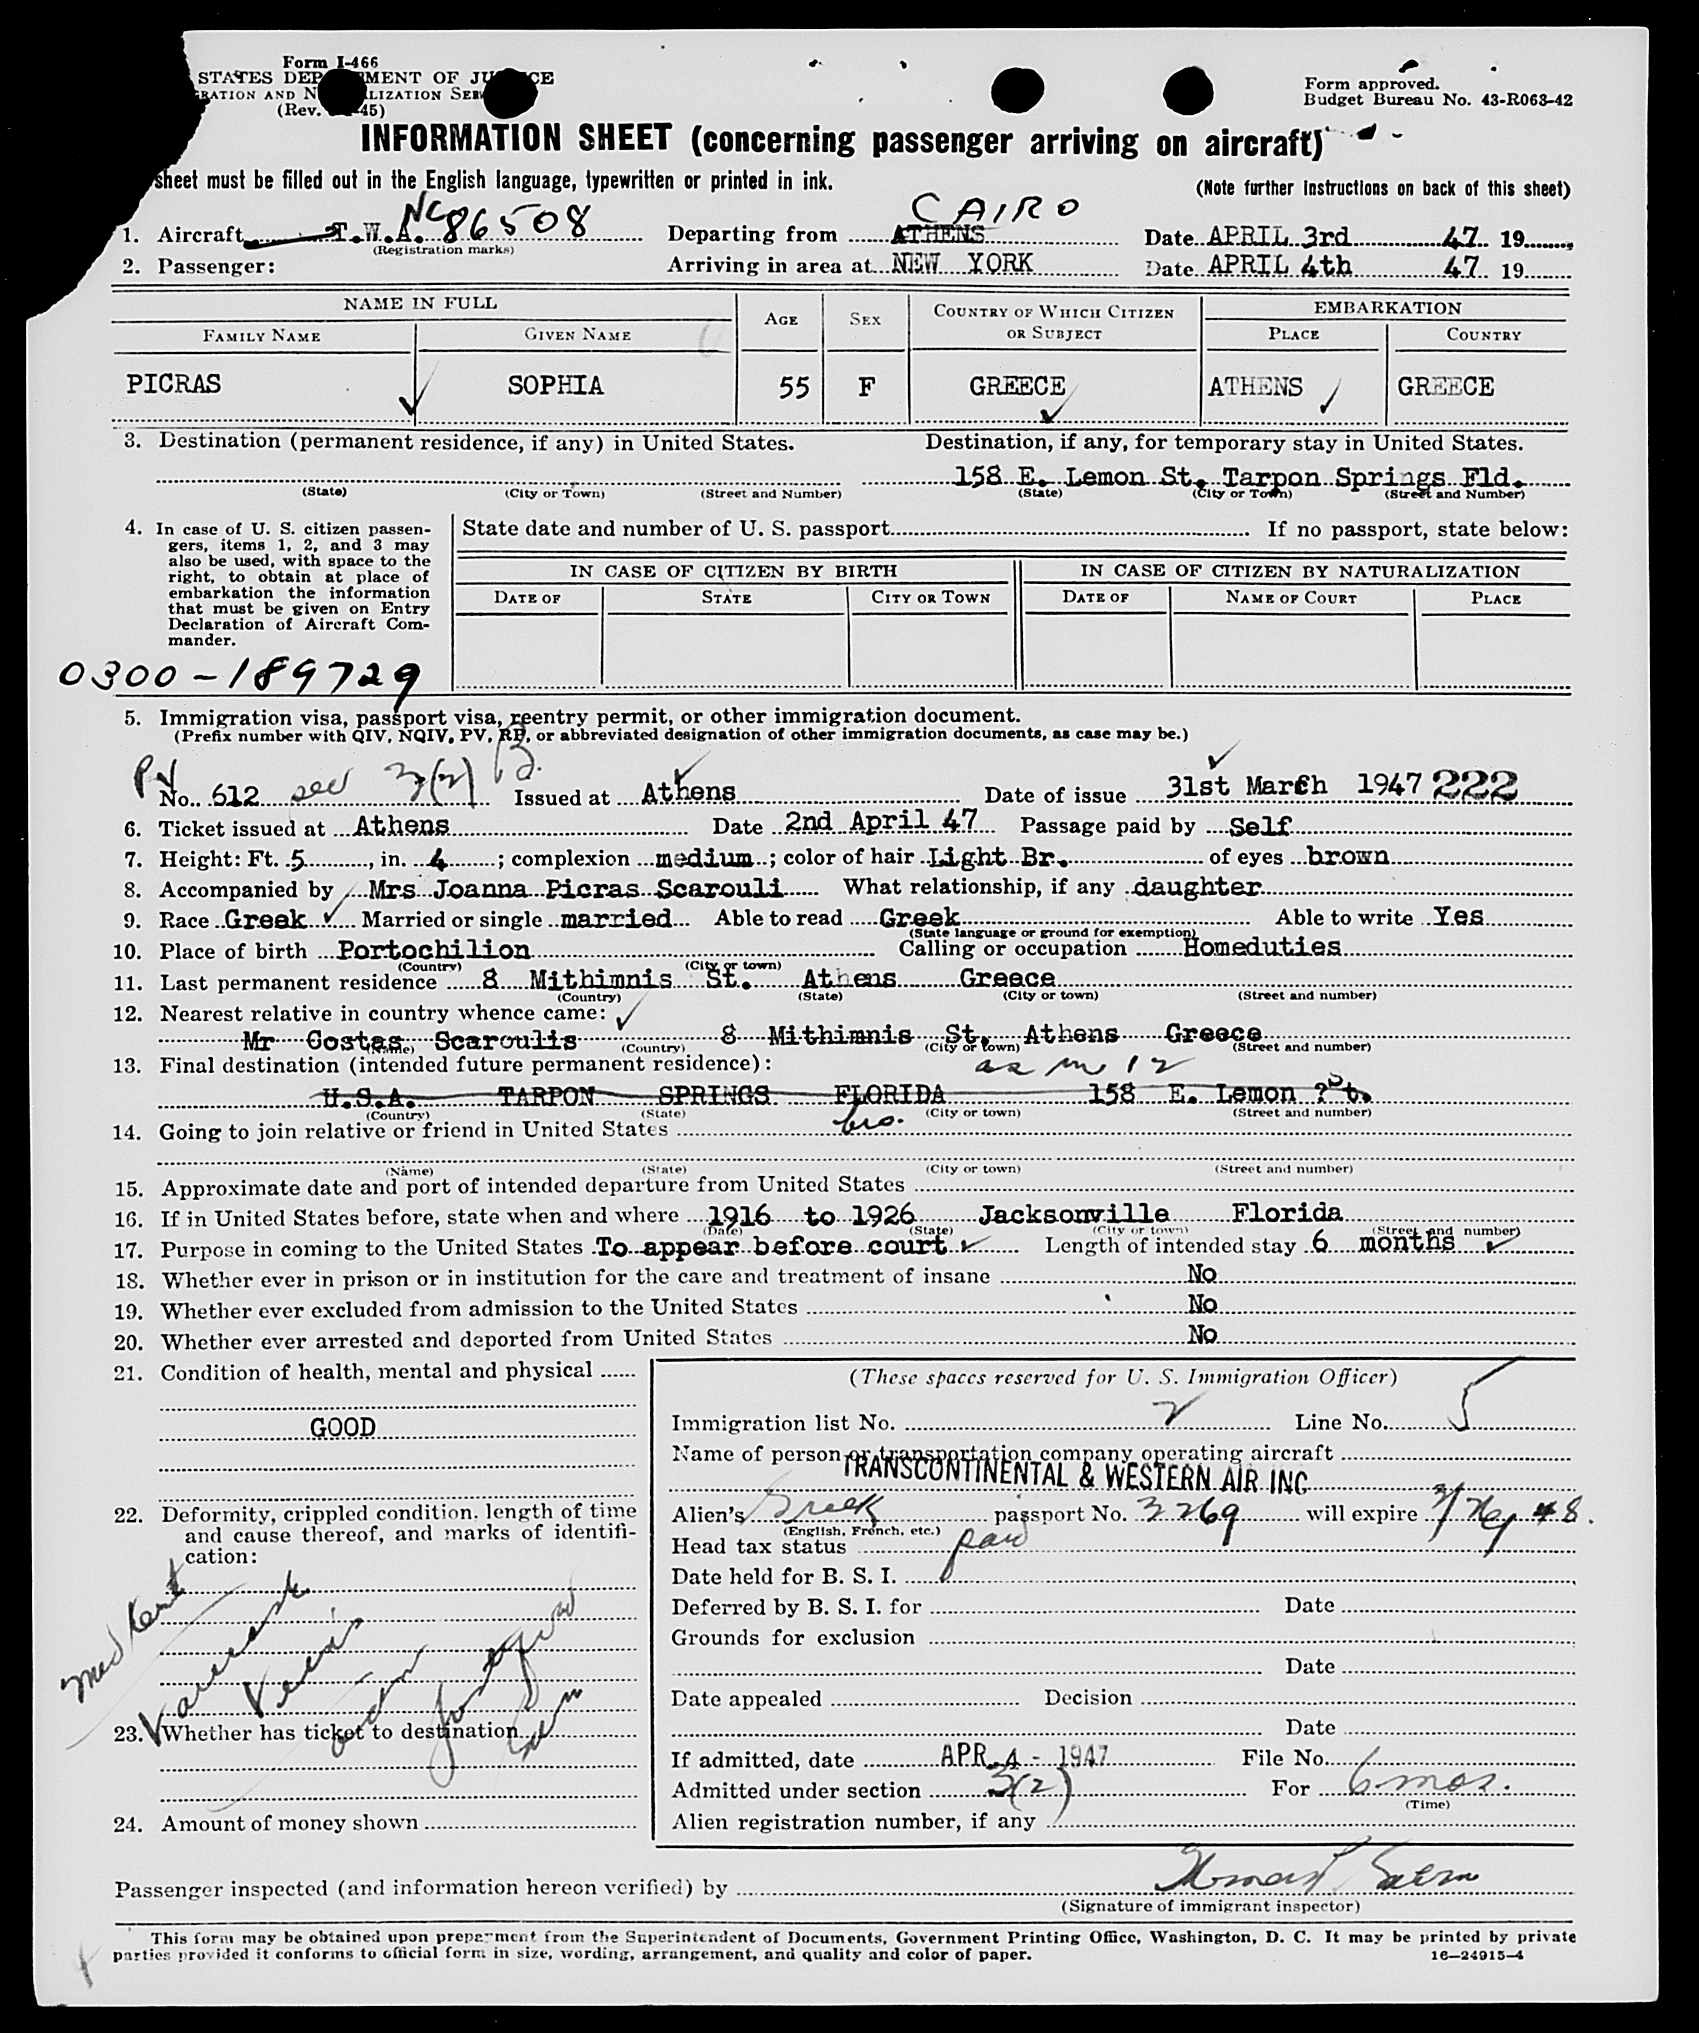 Form I-466
STATES DEP MENT OF JU CE
RATION AND N LIZATION SER
(Rev. 45)
Form approved.
Budget Bureau No. 43-R063-42
INFORMATION SHEET (concerning passenger arriving on aircraft)
sheet must be filled out in the English language, typewritten or printed in ink.
(Note further instructions on back of this sheet)
1. Aircraft T.W.A. NC86508 Departing from ATHENS CAIRO Date APRIL 3rd 47 19
(Registration marks)
2. Passenger: Arriving in area at NEW YORK Date APRIL 4th 47 19
NAME IN FULL AGE SEX COUNTRY OF WHICH CITIZEN OR SUBJECT EMBARKATION
FAMILY NAME GIVEN NAME PLACE COUNTRY
PICRAS SOPHIA 55 F GREECE ATHENS GREECE
3. Destination (permanent residence, if any) in United States. Destination, if any, for temporary stay in United States.
158 E. Lemon St. Tarpon Springs Fld.
(State) (City or Town) (Street and Number) (State) (City or Town) (Street and Number)
4. In case of U. S. citizen passengers, items 1, 2, and 3 may also be used, with space to the right, to obtain at place of embarkation the information that must be given on Entry Declaration of Aircraft Commander.
State date and number of U. S. passport If no passport, state below:
IN CASE OF CITIZEN BY BIRTH IN CASE OF CITIZEN BY NATURALIZATION
DATE OF STATE CITY OR TOWN DATE OF NAME OF COURT PLACE
0300-189729
5. Immigration visa, passport visa, reentry permit, or other immigration document.
(Prefix number with QIV, NQIV, PV, RP, or abbreviated designation of other immigration documents, as case may be.)
PV No. 612 sec 3(2) Issued at Athens Date of issue 31st March 1947 222
6. Ticket issued at Athens Date 2nd April 47 Passage paid by Self
7. Height: Ft. 5, in. 4; complexion medium; color of hair Light Br. of eyes brown
8. Accompanied by Mrs Joanna Picras Scarouli What relationship, if any daughter
9. Race Greek Married or single married Able to read Greek Able to write Yes
(State language or ground for exemption)
10. Place of birth Portochilion Calling or occupation Homeduties
(Country) (City or town)
11. Last permanent residence 8 Mithimnis St. Athens Greece
(Country) (State) (City or town) (Street and number)
12. Nearest relative in country whence came:
Mr Costas Scaroulis 8 Mithimnis St. Athens Greece
(Name) (Country) (City or town) (Street and number)
13. Final destination (intended future permanent residence): as in 12
U.S.A. TARPON SPRINGS FLORIDA 158 E. Lemon St.
(Country) (State) (City or town) (Street and number)
14. Going to join relative or friend in United States bro.
(Name) (State) (City or town) (Street and number)
15. Approximate date and port of intended departure from United States
16. If in United States before, state when and where 1916 to 1926 Jacksonville Florida
(Date) (State) (City or town) (Street and number)
17. Purpose in coming to the United States To appear before court Length of intended stay 6 months
18. Whether ever in prison or in institution for the care and treatment of insane No
19. Whether ever excluded from admission to the United States No
20. Whether ever arrested and deported from United States No
21. Condition of health, mental and physical
GOOD
22. Deformity, crippled condition, length of time and cause thereof, and marks of identification:
Med Cert
Varicose
Veins
23. Whether has ticket to destination
24. Amount of money shown
(These spaces reserved for U. S. Immigration Officer)
Immigration list No. 2 Line No. 5
Name of person or transportation company operating aircraft
TRANSCONTINENTAL & WESTERN AIR INC
Alien's Greek passport No. 3269 will expire 48.
(English, French, etc.)
Head tax status paid
Date held for B. S. I.
Deferred by B. S. I. for Date
Grounds for exclusion
Date
Date appealed Decision
Date
If admitted, date APR 4 - 1947 File No.
Admitted under section 3(2) For 6 mos.
(Time)
Alien registration number, if any
Passenger inspected (and information hereon verified) by
(Signature of immigrant inspector)
This form may be obtained upon prepayment from the Superintendent of Documents, Government Printing Office, Washington, D. C. It may be printed by private
parties provided it conforms to official form in size, wording, arrangement, and quality and color of paper. 16—24915-4